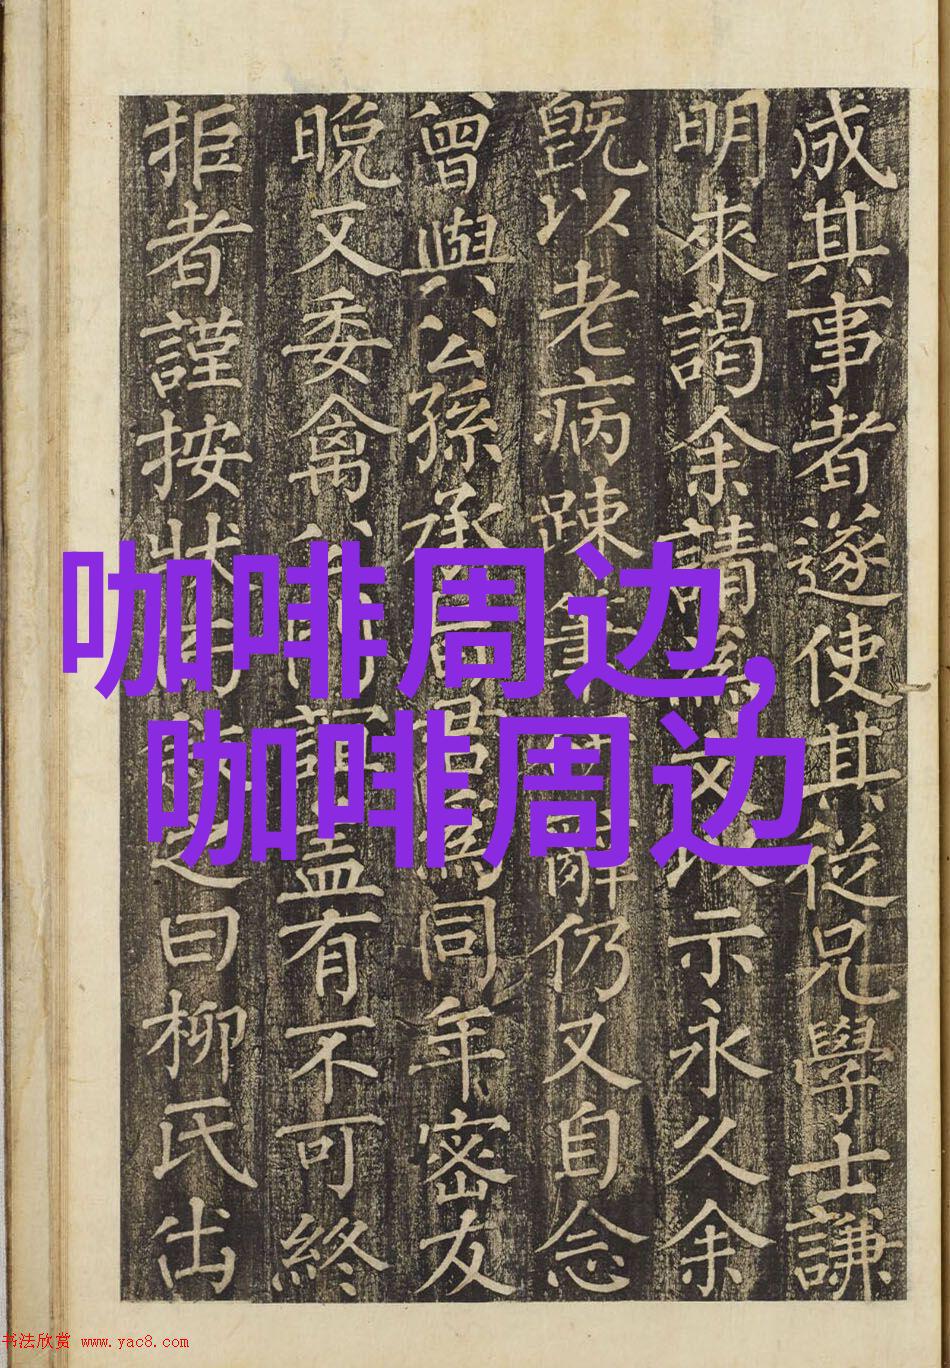 成其事者遂使其從兄學士謙
明來謁余請為文以示永久余
既以老病踈筆辭仍又自念
曾與公孫承同年密友
晚又委禽有不可終
拒者謹按狀之曰柳氏出
咖啡周边,
咖啡周边
书法欣赏 www.yac8.com